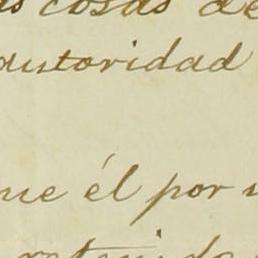 cosas de
autoridad
que él por